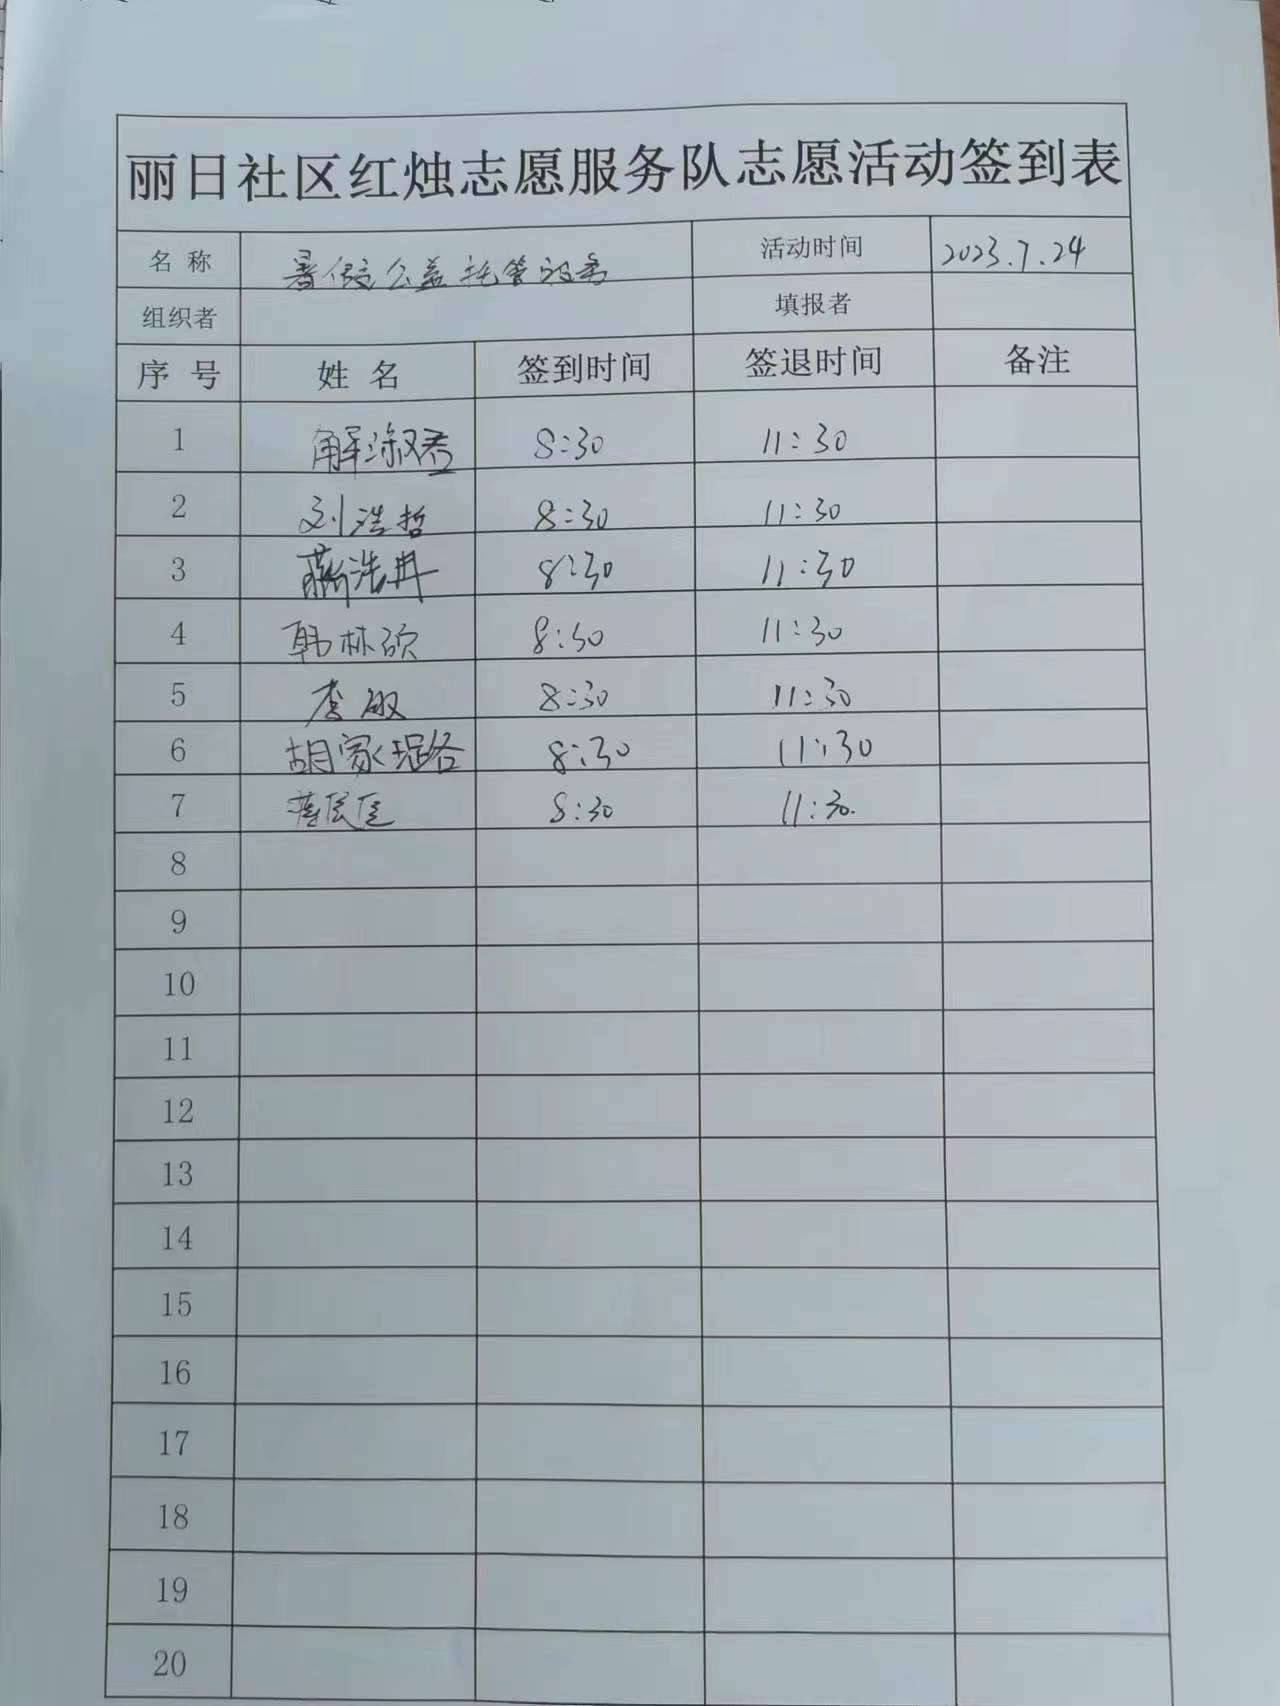 丽日社区红烛志愿服务队志愿活动签到表
名 称 暑假公益托管服务 活动时间 2023.7.24
组织者 填报者
序 号 姓 名 签到时间 签退时间 备注
1 解淑君 8:30 11:30
2 刘浩哲 8:30 11:30
3 蒋浩冉 8:30 11:30
4 韩林硕 8:30 11:30
5 李敏 8:30 11:30
6 胡家瑶 8:30 11:30
7 8:30 11:30
8
9
10
11
12
13
14
15
16
17
18
19
20